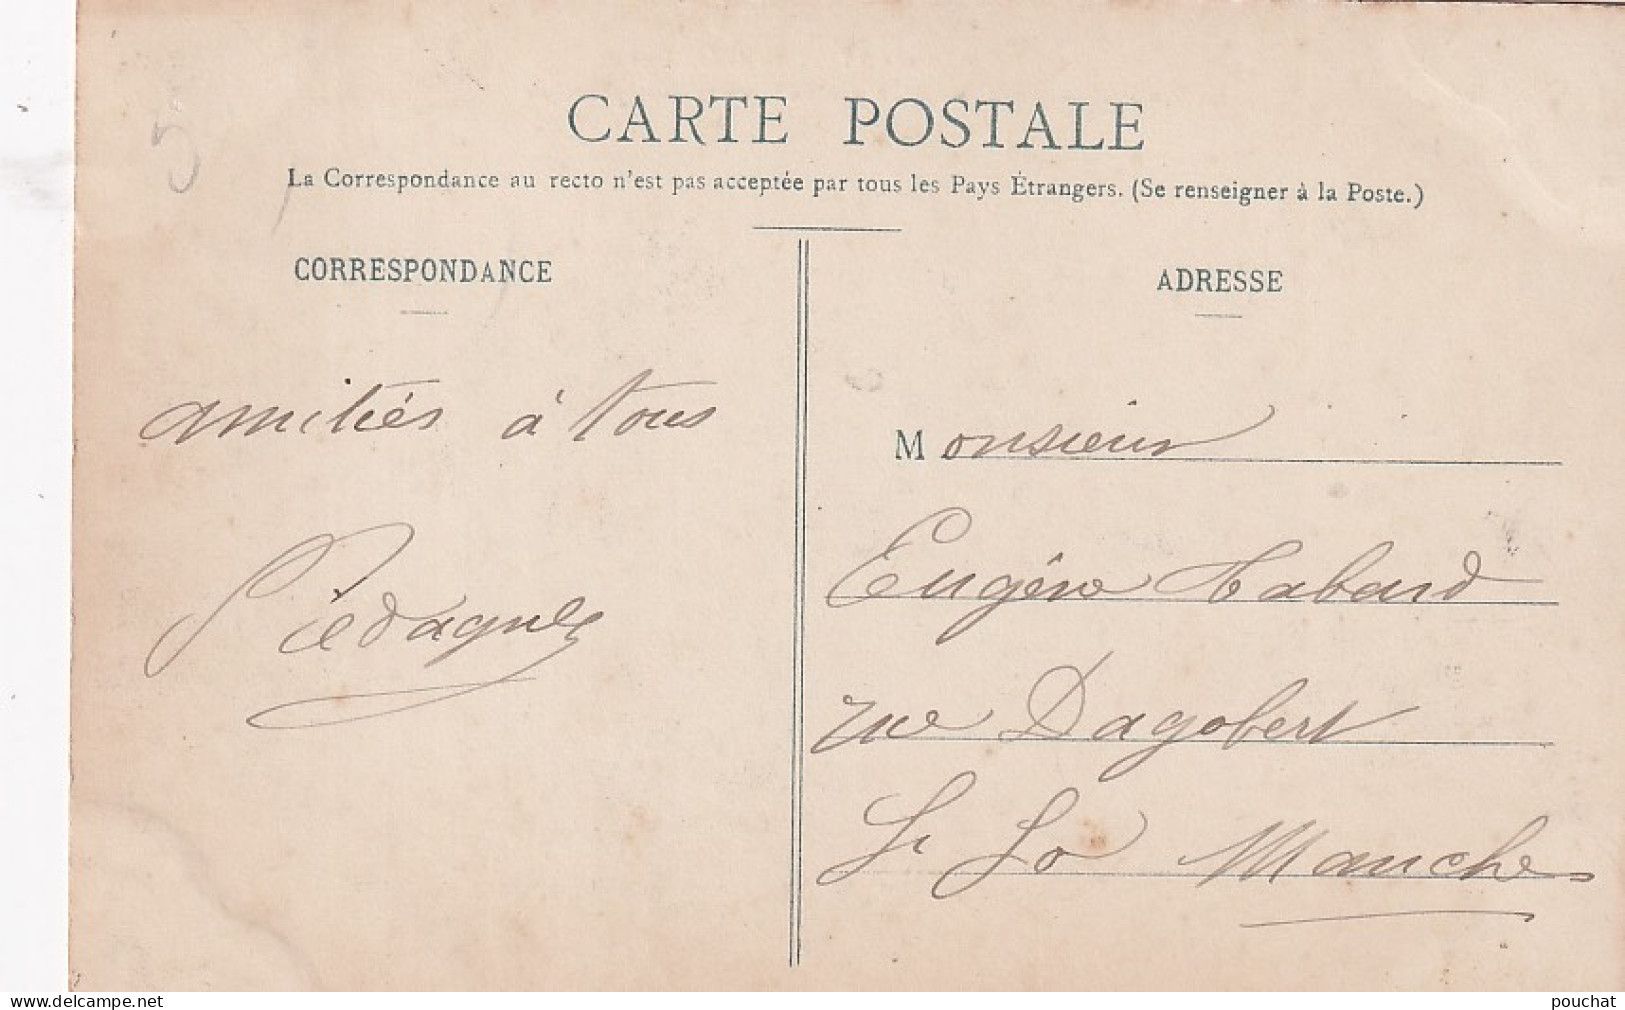 CARTE POSTALE
La Correspondance au recto n'est pas acceptée par tous les Pays Étrangers. (Se renseigner à la Poste.)
CORRESPONDANCE
amitiés à tous
Piedagnel
ADRESSE
Monsieur
Eugène Tabard
rue Dagobert
St Lo Manche
www.delcampe.net
pouchat